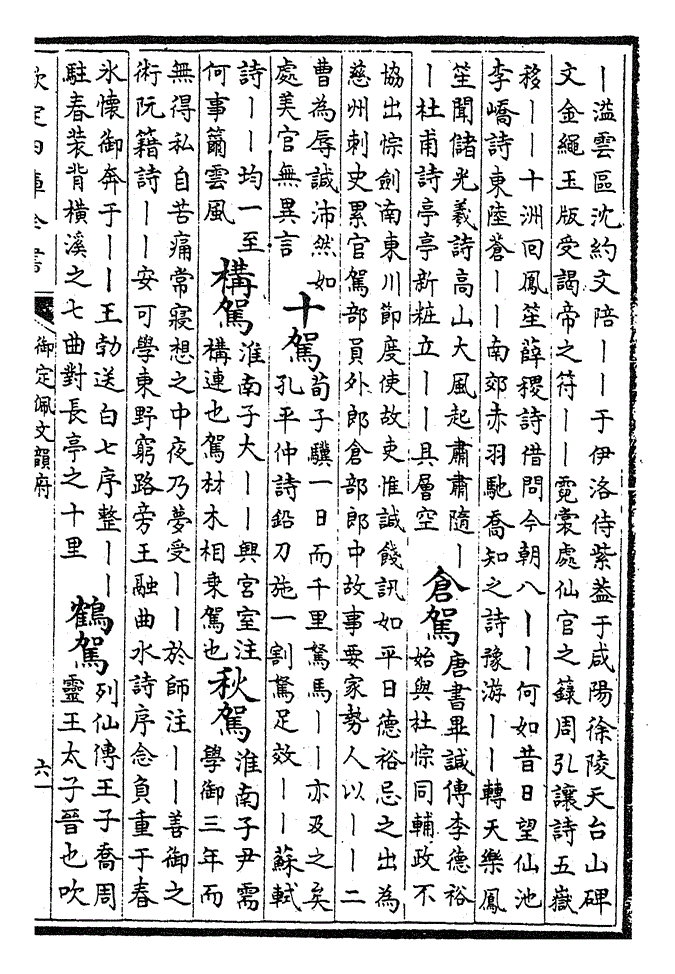 丨溢雲區沈約文陪丨丨于伊洛侍紫蓋于咸陽徐陵天台山碑
文金繩玉版受謁帝之符丨丨霓裳處仙官之籙周弘讓詩五嶽
移丨丨十洲回鳳笙薛稷詩借問今朝八丨丨何如昔日望仙池
李嶠詩東陸蒼丨丨南郊赤羽馳喬知之詩豫游丨丨轉天樂鳳
笙聞儲光羲詩高山大風起肅肅隨丨
丨杜甫詩亭亭新粧立丨丨具層空
倉駕
唐書畢諴傳李德裕
始與杜悰同輔政不
協出悰劍南東川節度使故吏惟諴餞訊如平日德裕忌之出為
慈州刺史累官駕部員外郎倉部郎中故事要家勢人以丨丨二
曹為辱諴沛然如
處美官無異言
十駕
荀子驥一日而千里駑馬丨丨亦及之矣
孔平仲詩鉛刀施一割駑足效丨丨蘇軾
詩丨丨均一至
何事籋雲風
構駕
淮南子大丨丨興宮室注
構連也駕材木相乗駕也
秋駕
淮南子尹需
學御三年而
無得私自苦痛常寢想之中夜乃夢受丨丨於師注丨丨善御之
術阮籍詩丨丨安可學東野窮路旁王融曲水詩序念負重于春
氷懷御奔于丨丨王勃送白七序整丨丨
駐春装背横溪之七曲對長亭之十里
鶴駕
列仙傳王子喬周
靈王太子晉也吹
欽定四庫全書
御定佩文韻府
六一